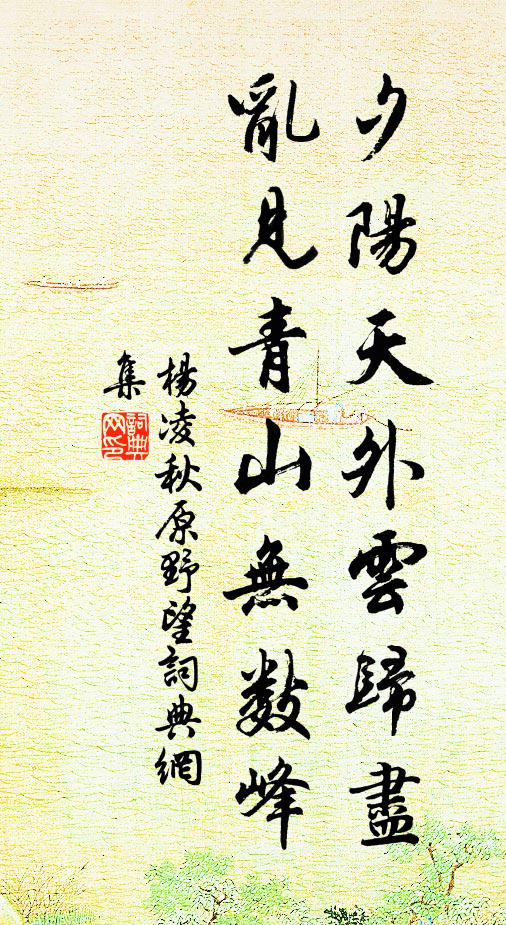 夕陽天外雲歸盡
亂見青山無数峰
楊凌秋原野望詞典網
集
詞典
网印